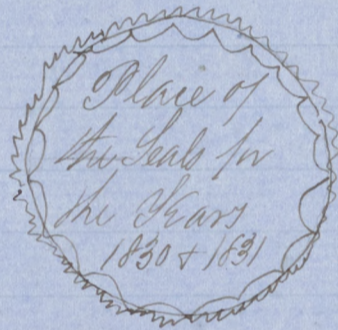 Place of
the Seals for
the Years
1830 & 1831